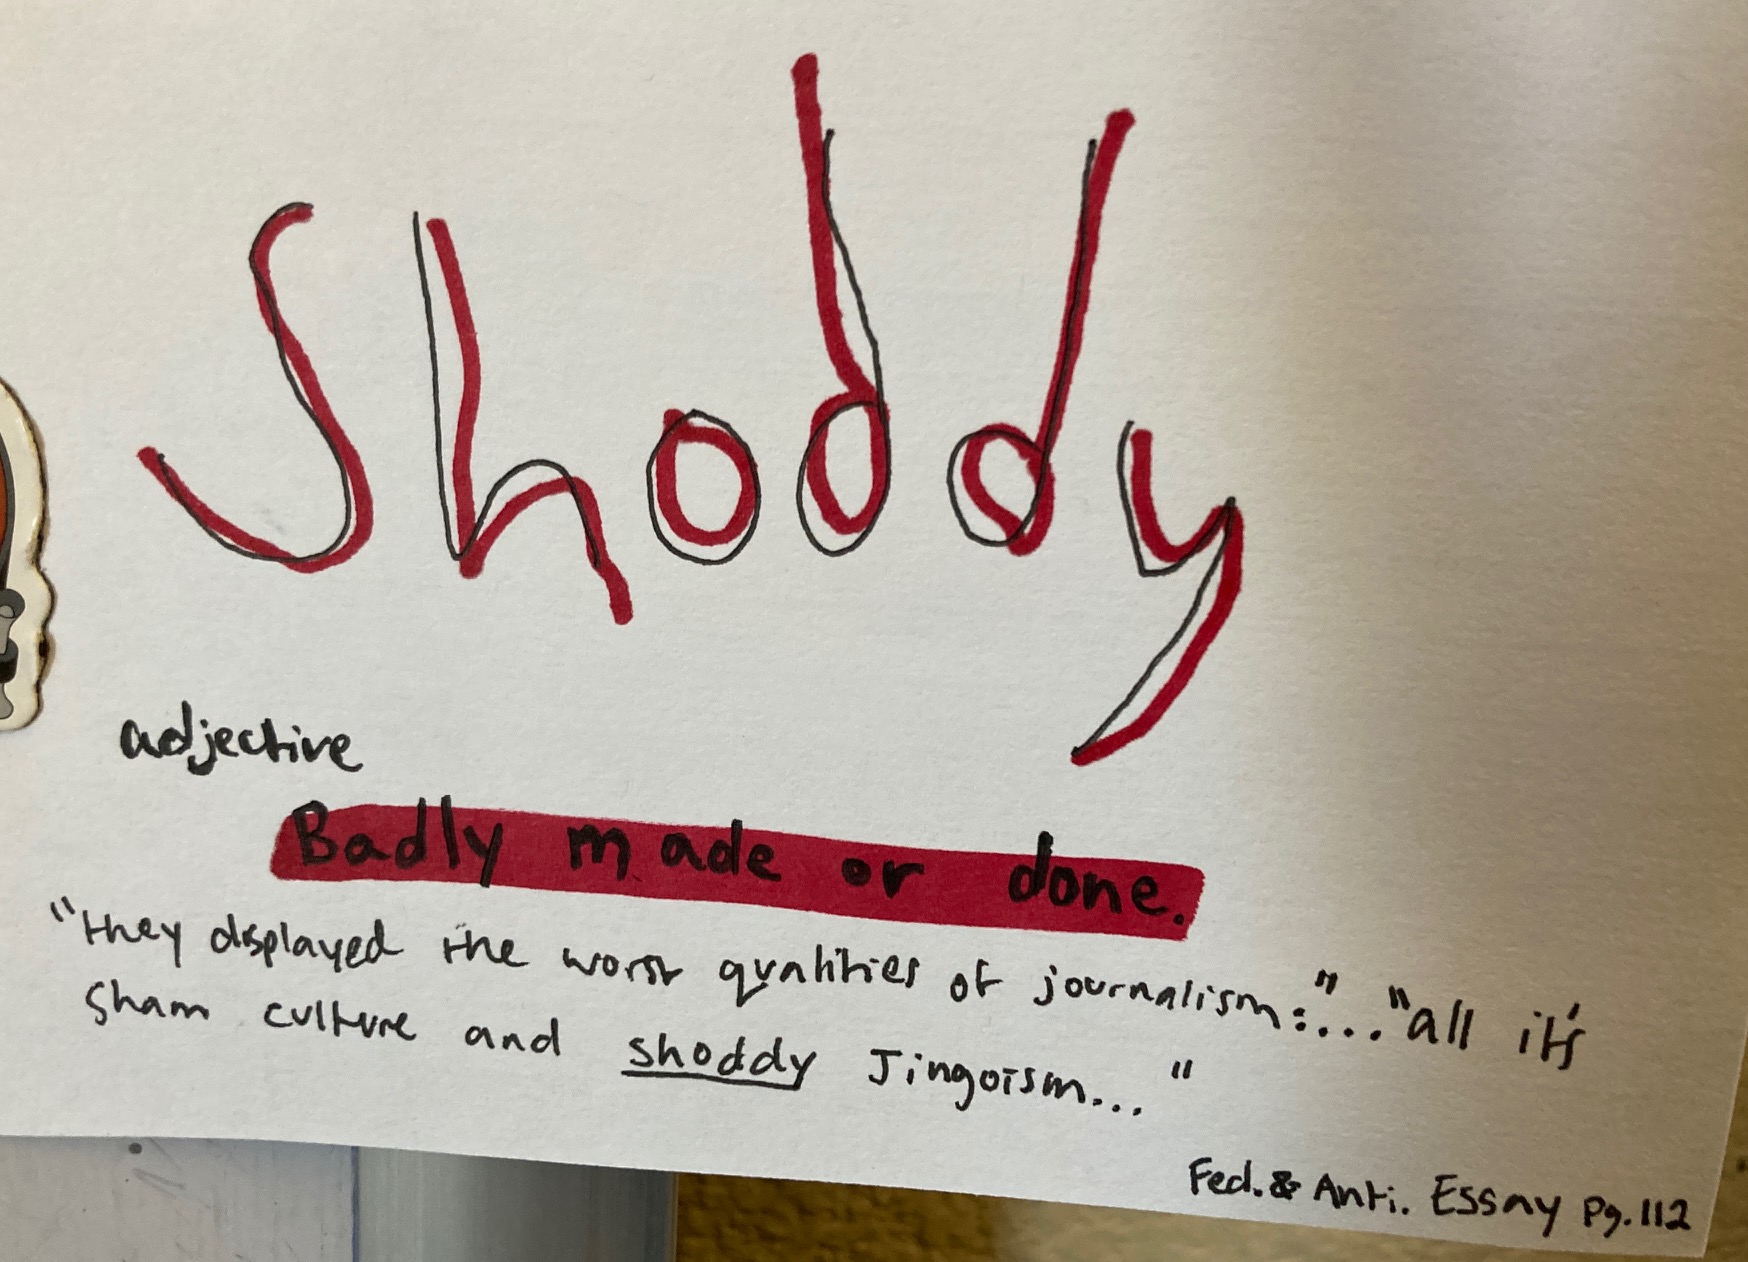 Shoddy
adjective
Badly made or done.
"they displayed the worst qualities of journalism:"..."all it's
sham culture and shoddy Jingoism..."
Fed. & Anti. Essay pg.112